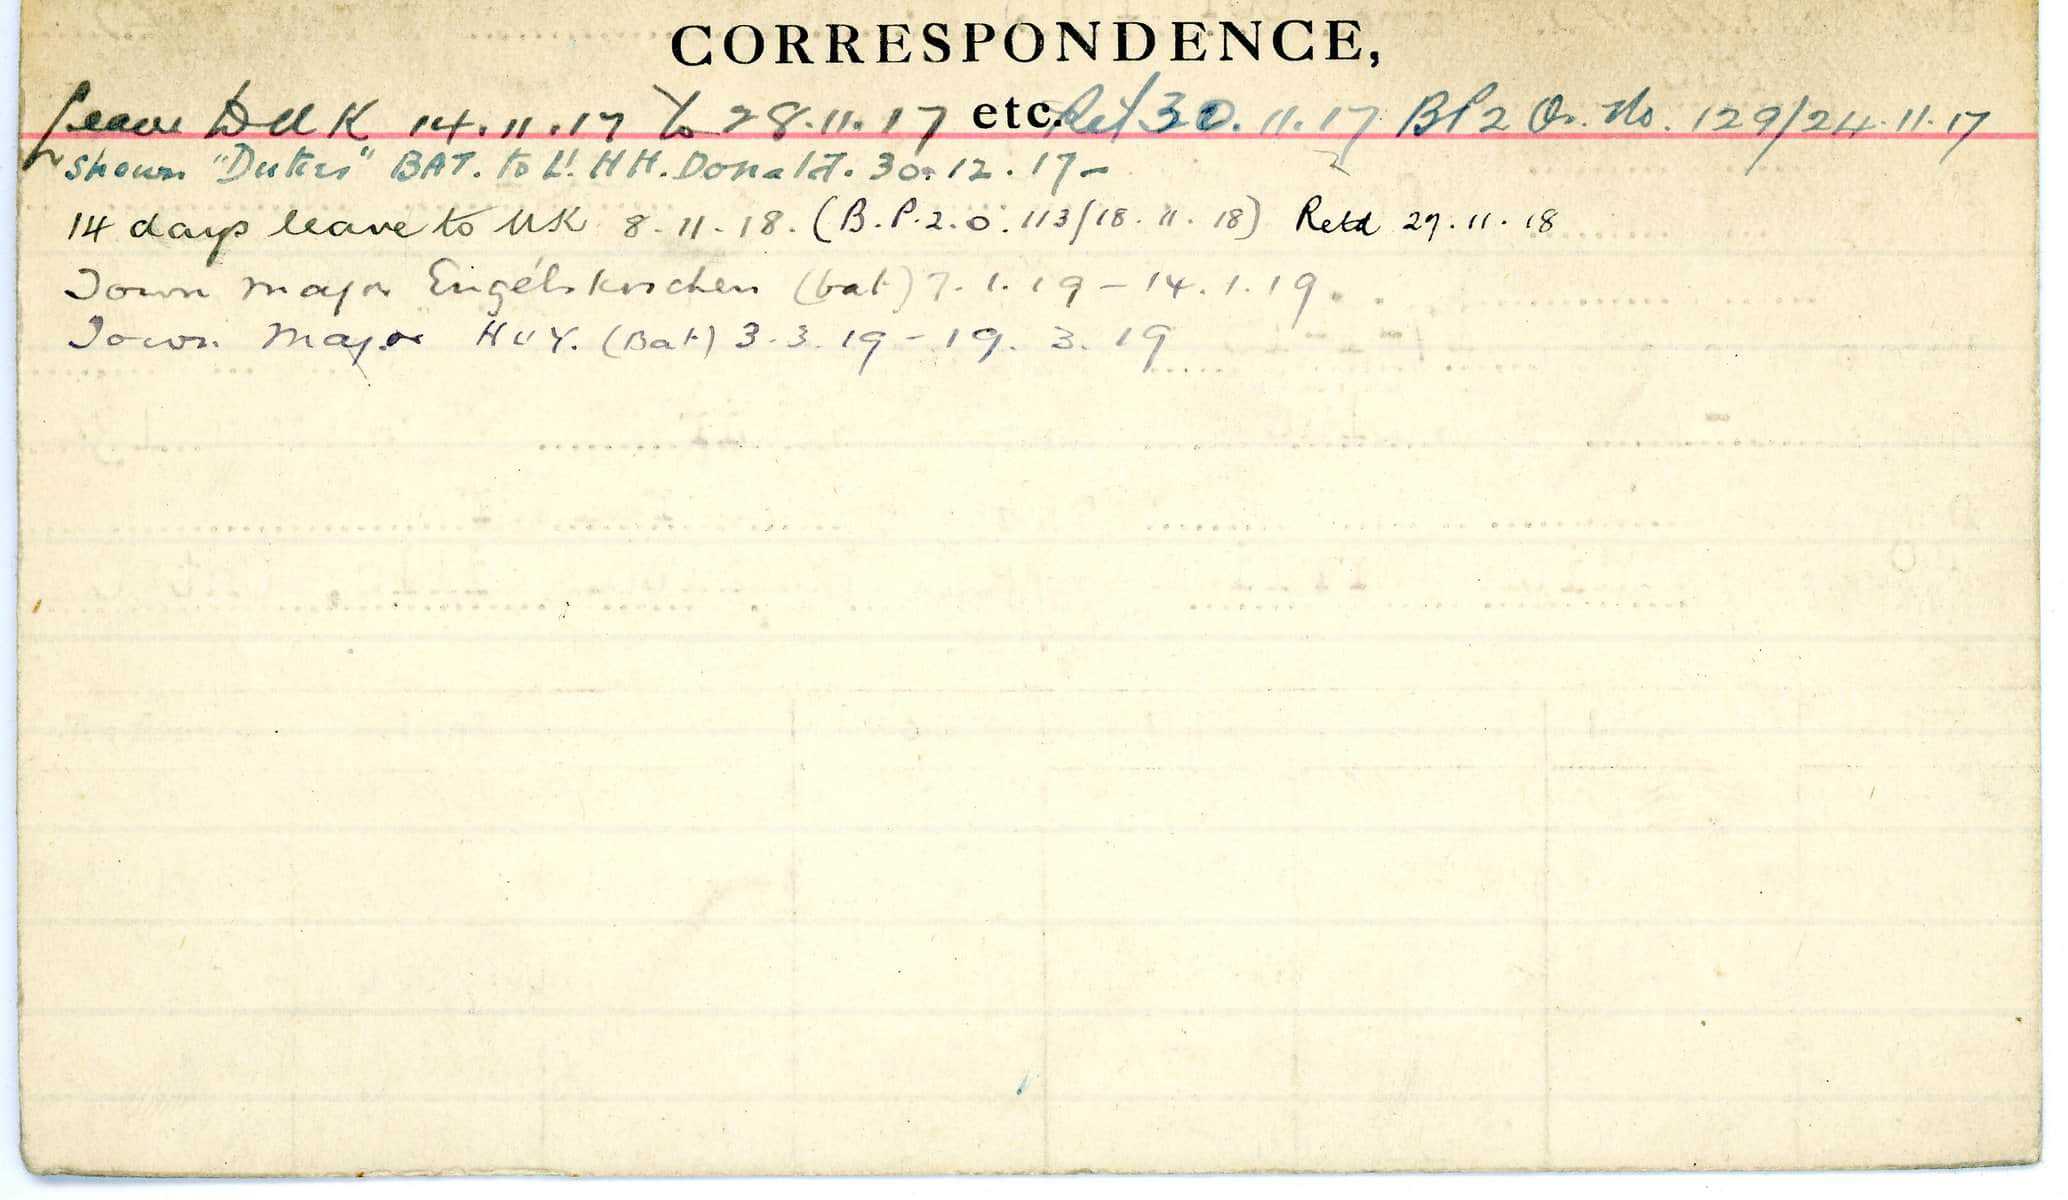 CORRESPONDENCE,
Leave to U K 14.11.17 to 28.11.17 etc. Ret 30.11.17 BP2 Or. No. 129/24.11.17
shown "Duties" BAT. to Lt. H H. Donald. 30.12.17-
14 days leave to UK 8.11.18. (B.P.2.O. 113/18.11.18) Retd 27.11.18
Town Major Engelskirchen (bat) 7.1.19 - 14.1.19.
Town Major HUY. (Bat) 3.3.19 - 19.3.19